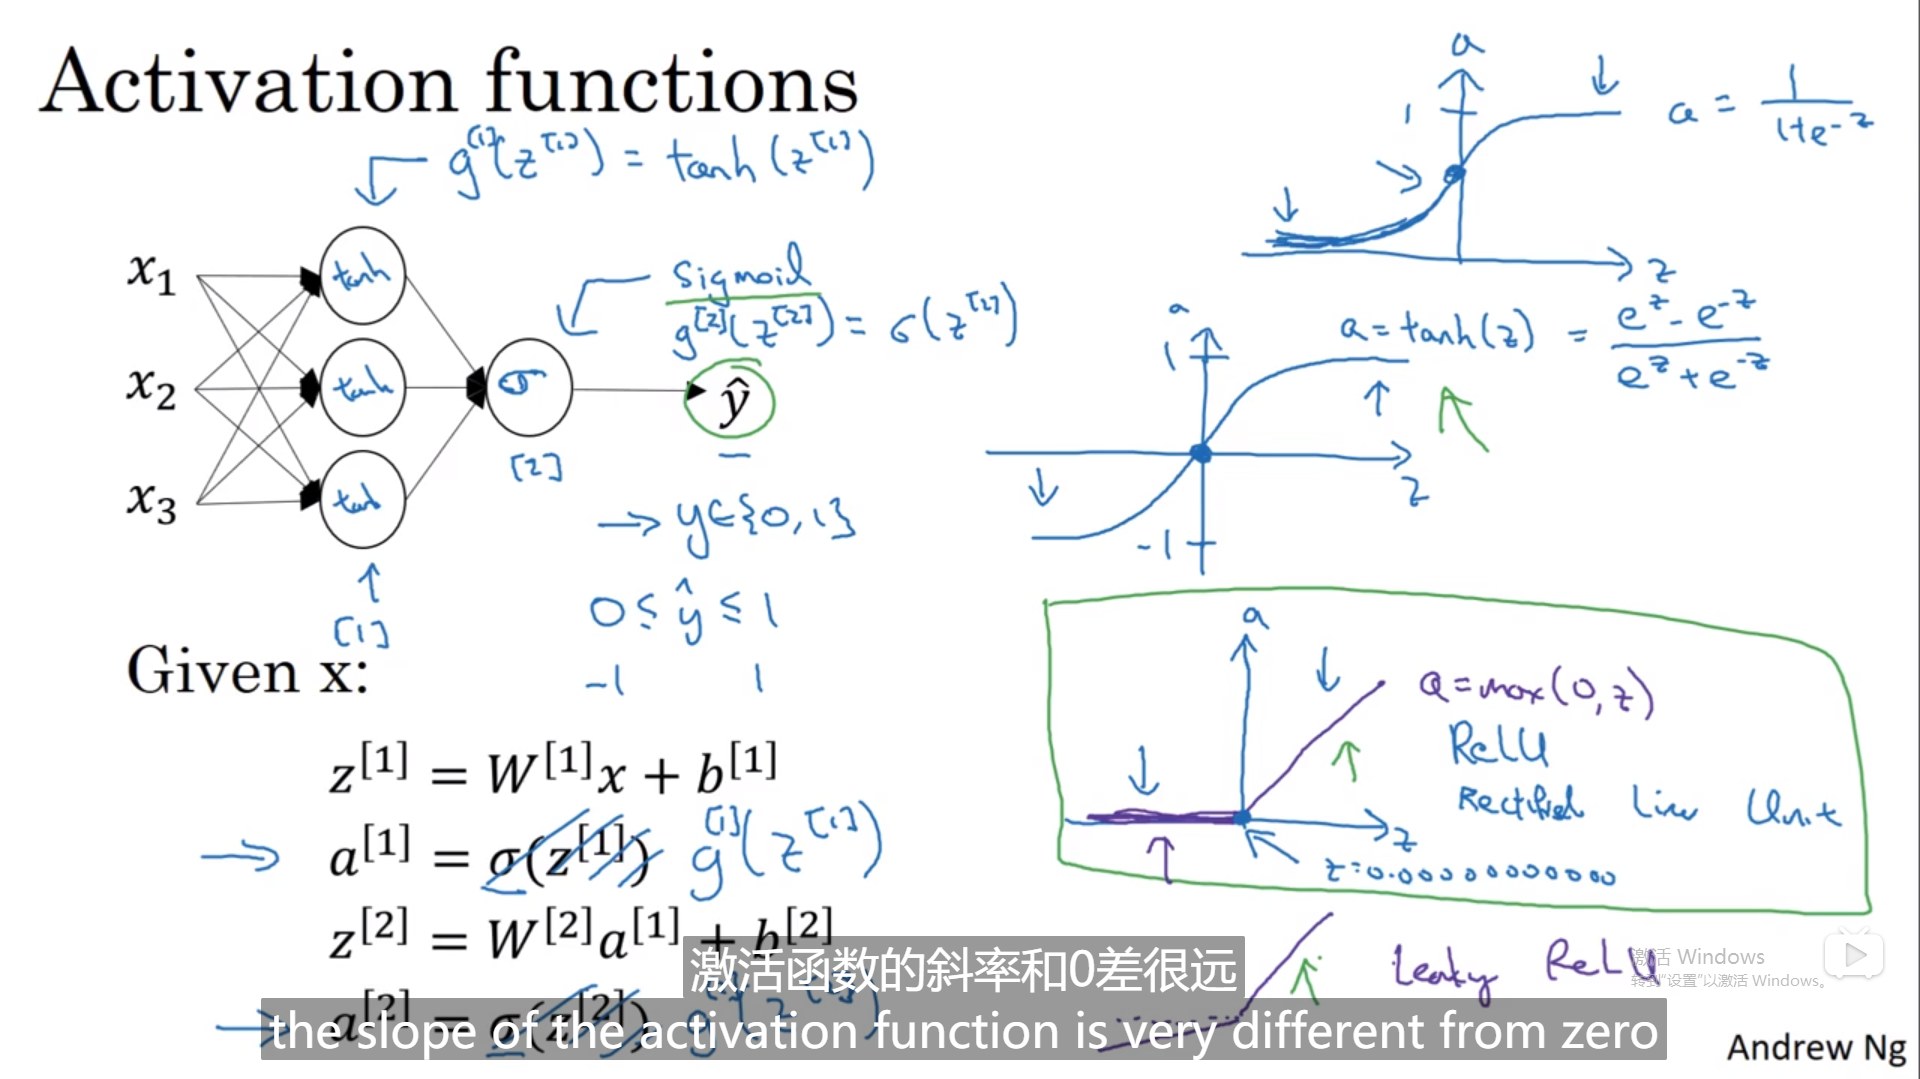 Activation functions
g^[1](z^[1]) = tanh(z^[1])
x₁
x₂
x₃
tanh
tanh
tanh
[1]
σ
[2]
Sigmoid
g^[2](z^[2]) = σ(z^[2])
ŷ
→ y∈{0,1}
0 ≤ ŷ ≤ 1
-1 1
Given x:
z^[1] = W^[1]x + b^[1]
→ a^[1] = σ(z^[1]) g^[1](z^[1])
z^[2] = W^[2]a^[1] + b^[2]
→ a^[2] = σ(z^[2])
a
1
z
a = 1/(1+e^-z)
a
1
-1
z
a = tanh(z) = (e^z - e^-z)/(e^z + e^-z)
a
z
a = max(0,z)
ReLU
Rectified Unit
z=0.00000000000
Leaky ReLU
激活 Windows
转到"设置"以激活 Windows。
激活函数的斜率和0差很远
the slope of the activation function is very different from zero
Andrew Ng